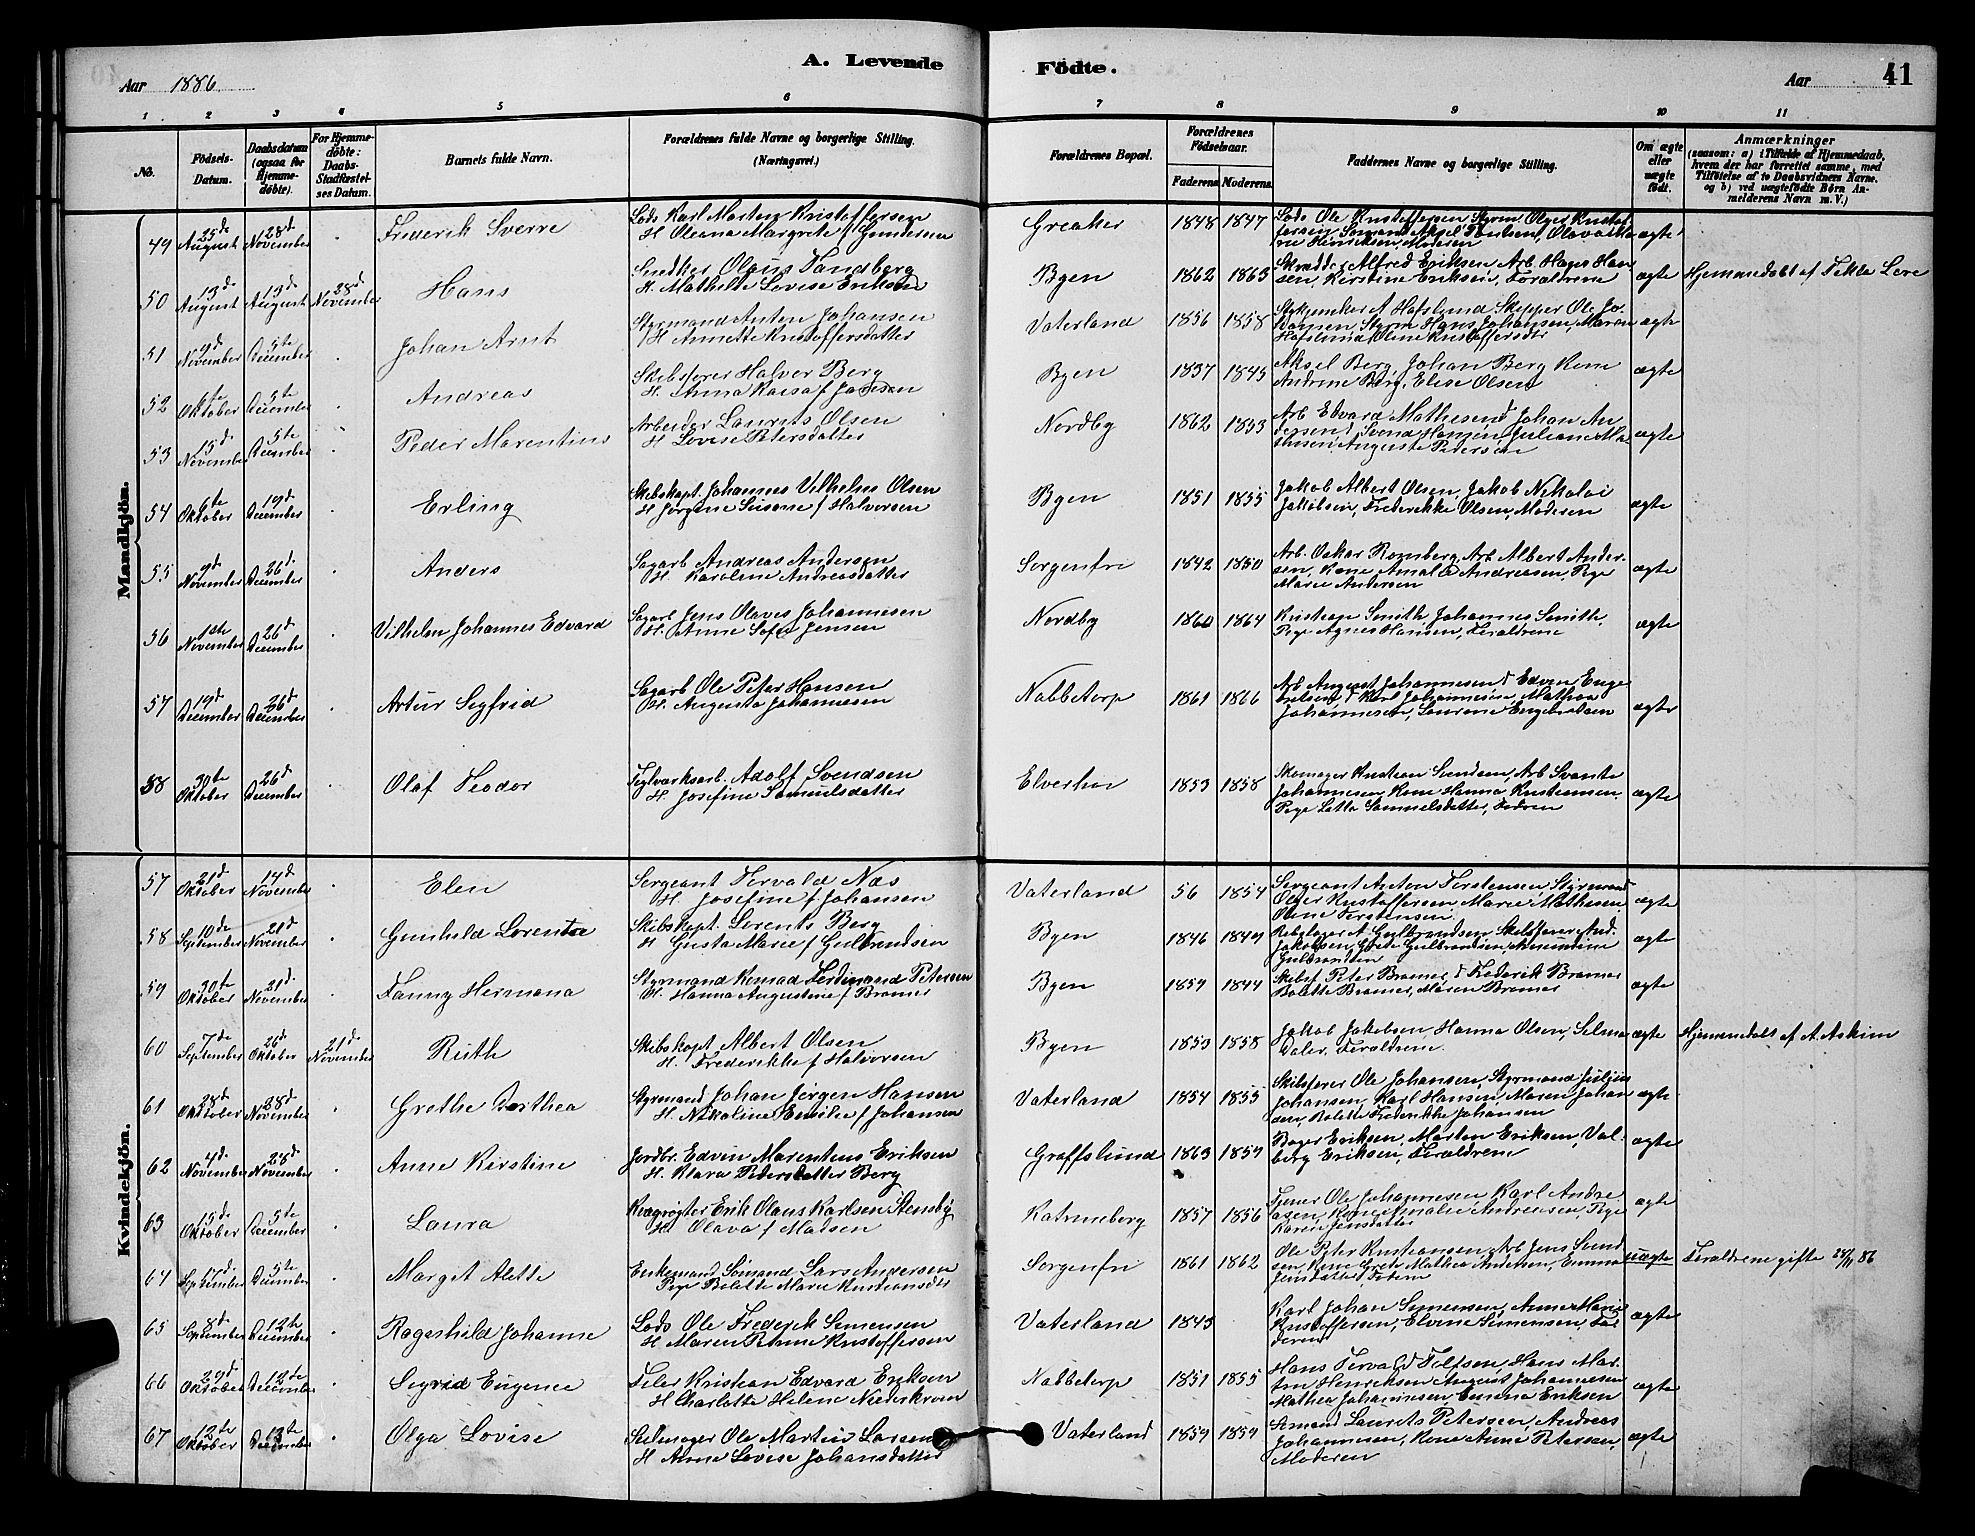 A. Levende Fødte.
Aar 1886
Aar 41
1 2 3 4 5 6 7 8 9 10 11
No. Fødsels-Datum. Daabsdatum (ogsaa for Hjemmedøbte). For Hjemmedøbte: Daabs-Stadfæstelses Datum. Barnets fulde Navn. Forældrenes fulde Navne og borgerlige Stilling. (Næringsvei.) Forældrenes Bopæl. Forældrenes Fødselsaar. Faderens Moderens. Faddernes Navne og borgerlige Stilling. Om ægte eller uægte født. Anmærkninger (saasom: a) i Tilfælde af Hjemmedaab, hvem der har forrettet samme, med Tilføielse af to Daabsvidners Navne. og b) ved uægtefødte Børn Anmelderens Navn m. V.)
Mandkjön.
49 25de August 28de November Frederik Sverre Lods Karl Martin Kristoffersen H. Oleana Margrete f Gundersen Greaker 1848 1847 Lods Ole Kristoffersen ægte
50 13de August 13de August 28de November Hans Snedker Olaus Sandberg H. Mathilde Lovise Eriksen Byen 1862 1863 Skrædder Alfred Eriksen, Arb. Hans Hansen, Kirstine Eriksen, Forældrene ægte Hjemmedøbt af Tekla Lere
51 9de November 5te December Johan Arnt Styrmand Anton Johansen H. Annette Kristoffersdatter Vaterland 1856 1858 A Hafslund Skipper Ole Johansen, Styrm Hans Johansen, Maren Hafslund, Oline Kristoffersdtr ægte
52 6te Oktober 5te December Andreas Skibsfører Halvor Berg H. Anna Kaisa f Jansen Byen 1837 1845 Aksel Berg, Johan Berg Kone Andrine Berg, Elise Olsen ægte
53 5de November 5te December Peder Marentius Arbeider Laurits Olsen H. Lovise Petersdatter Nordby 1862 1853 Arb Edvard Mathisen Johan Andersen, Svend Hansen, Juliane Mathisen, Auguste Pedersen ægte
54 6te Oktober 19de December Erling Skibskapt. Johannes Vilhelm Olsen H Jørgine Susanne f Halvorsen Byen 1851 1855 Jakob Albert Olsen, Jakob Nikolai Jakobsen, Frederikke Olsen, Moderen ægte
55 9de November 26de December Anders Sagarb Andreas Andersen H. Karoline Andreasdatter Sorgenfri 1842 1850 Arb. Oskar Romsberg, Arb Albert Andersen, Kone Amalie Andreasen, Pige Marie Andersen ægte
56 1ste November 26de December Vilhelm Johannes Edvard Sagarb Jens Olaves Johannesen H. Anne Sofie Jensen Nordby 1860 1864 Kristian Smith, Johannes Smith, Pige Agnes Hansen, Forældrene ægte
57 19de December 26de December Artur Sigfrid Sagarb Ole Peter Hansen H. Augusta Johannesen Nabbetorp 1861 1866 Arb August Johannesen Edvin Engebretsen, Karl Johannesen, Mathea Johannesen, Laurine Engebretsen ægte
58 30te Oktober 26de December Olaf Teodor Teglværksarb. Adolf Svendsen H. Josefine Samuelsdatter Elverhøi 1853 1858 Skomager Kristian Svendsen, Arb Svante Johannesen, Kone Hanna Kristiansen, Pige Lotta Samuelsdatter, Fadren ægte
Kvindekjön.
57 21de Oktober 14de November Elen Sergeant Torvald Næs H. Josefine f Johansen Vaterland 56 1854 Sergeant Anton Torstensen, Styrmand Olger Kristoffersen, Marie Mathisen, Oline Torstensen ægte
58 10de September 21de November Gunhild Lorentza Skibskapt. Lorents Berg H Gusta Marie f Gulbrandsen Byen 1846 1849 Rebslager A. Gulbrandsen, Skibsfører And. Jakobsen, Grete Gulbrandsen, Gulbrandsen ægte
59 30te Oktober 21de November Fanny Hermana Styrmand Konrad Ferdinand Petersen H. Hanna Augustine f Bramer Byen 1859 1844 Skibsf Peter Bramer, Frederik Bramer Bolette Bramer, Maren Bramer ægte
60 7de September 26de Oktober 21de November Ruth Skibskapt Albert Olsen H. Frederikke f Halvorsen Byen 1853 1858 Jakob Jakobsen, Hanna Olsen, Selma Daler, Forældrene ægte Hjemmedøbt af A. Askim
61 28de Oktober 28de November Grethe Dorthea Styrmand Johan Jørgen Hansen H. Nikoline Emilie f Johansen Vaterland 1854 1855 Skibsfører Ole Johansen, Styrmand Julius Johansen, Karl Hansen, Maren Johansen, Bolette Frederikke Johansen ægte
62 4de November 28de November Anne Kirstine Jordbr. Edvin Marentius Eriksen H. Klara Pedersdatter Berg Graffslund 1863 1859 Bager Eriksen, Marten Eriksen, Valberg Eriksen, Forældrene ægte
63 15de Oktober 5te December Laura Kvægrøgter Erik Olaus Karlsen Stensby H. Olava f Madsen Katrineberg 1857 1856 Ole Johannesen, Karl Andreasen, Kone Amalie Andreasen, Pige Karen Jensdatter ægte
64 17de September 5te December Marget Alette Enkemand Sømand Lars Andersen Pige Bolette Marie Kristiansdtr Sorgenfri 1861 1862 Ole Peter Kristiansen, Arb Jens Svendsen, Kone Grete Mathea Andersen, Emma Jensdatter uægte Forældrene gifte 28/11 86
65 8de September 12te December Ragnhild Johanne Lods Ole Frederik Simensen H. Maren Petrine Kristoffersen Vaterland 1843 Karl Johan Simensen, Anne Marie Kristoffersen, Elvine Simensen, Faderen ægte
66 29de Oktober 12te December Sigrid Eugenie Feler Kristian Edvard Eriksen H Charlotte Helene Niederkron Nabbetorp 1851 1855 Hans Torvald Tolfsen, Hans Martin Henriksen, August Johannesen Mathea Johannesen, Emma Eriksen ægte
67 12te Oktober 13te December Olga Lovise Seilmager Ole Martin Larsen H Anne Lovise Johansdatter Vaterland 1859 1859 Sømand Laurits Petersen, Andreas Johannesen, Kone Anne Petersen, Moderen ægte